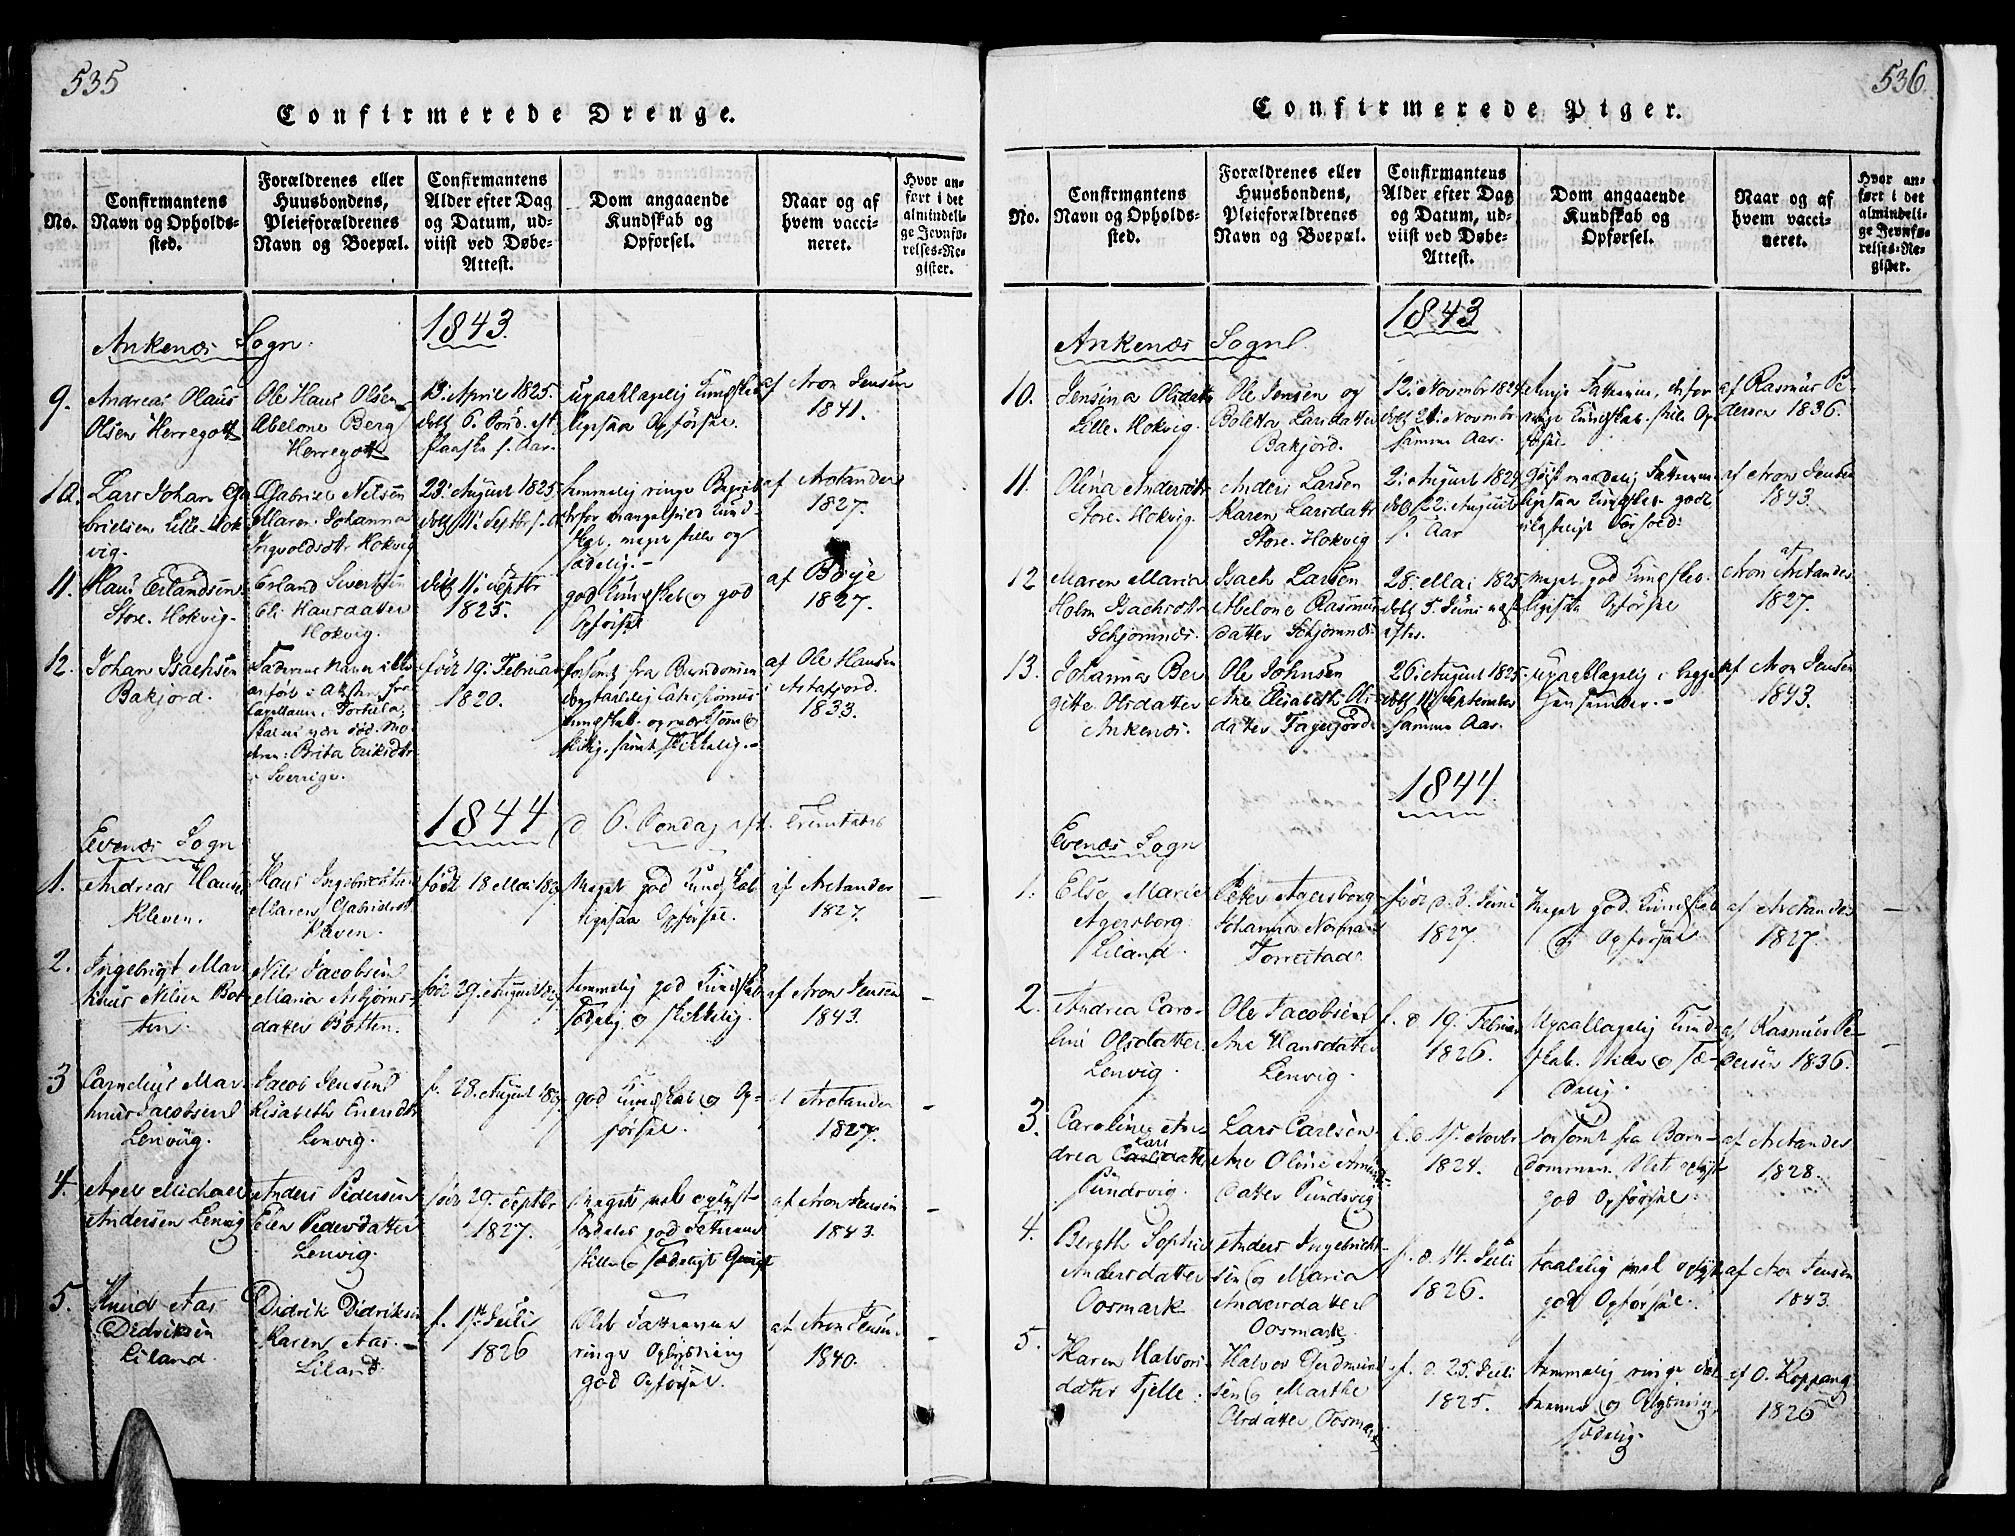 535
Confirmerede Drenge.
No.
Confirmantens
Navn og Opholds-
sted.
Forældrenes eller
Huusbondens,
Pleieforældrenes
Navn og Boepæl.
Confirmantens
Alder efter Dag
og Datum, ud-
viist ved Døbe-
Attest.
Dom angaaende
Kundskab og
Opførsel.
Naar og af
hvem vacci-
neret.
Hvor an-
ført i det
almindeli-
ge Jevnfø-
relses-Re-
gister.
Ankenæs Sogn.
1843.
9.
Andreas Olaus
Olsen Herregott
Ole Hans Olsen
Abelone Berg
Herregott
13. April 1825.
døbt 6. Sønd. eft.
Paaske s. Aar.
upaaklagelig Kundskab
ligesaa Opførsel.
af Aron Jensen
1841.
10.
Lars Johan Ga
brielsen Lille-Hok
vig.
Gabriel Nilsen
Maren Johanna
Ingvoldsdtr Hokvig
23. August 1825.
døbt 11. Septbr s. A.
temmelig ringe Begreb
derfor mangelfuld Kund-
skab, meget stille og
sædelig.-
af Arctander
1827.
11.
Hans Erlandsen
Store Hokvig.
Erland Sivertsen
Eli Hansdatter
Hokvig.
døbt 11. Septbr
1825.
god Kundskab og god
Opførsel
af Boye
1827.
12.
Johan Isachsen
Bakjord.
Faderens Navn ikke
anført i Attesten fra
skal være død. Mo-
deren: Brita Eriksdtr
i Sverrige.
født 19. Februar
1820.
forsømt fra Barndommen
skikkelig.-
af Ole Hansen
i Astafjord.
1833.
1844
d 6. Søndag eft. Trinitatis
Evenæs Sogn
1.
Andreas Hansen
Kleven.
Hans Ingebrigtsen
Maren Gabrielsdt
Kleven.
født 18 Mai
Meget god Kundskab
ligesaa Opførsel.
af Arctander
1827.
2.
Ingebrigt Mar-
thus Nilsen Bot-
ten.
Nils Jacobsen
Maria Asbjørns-
datter Botten.
født 29. August
temmelig god Kundskab
Sædelig og skikkelig.
af Aron Jensen
1843.
3
Cornelius Mar-
thus Jacobsen
Lenvig.
Jacob Jensen
Elisabeth Enendtr
Lenvig.
f. 28. August
god Kundskab og Op-
førsel.
af Arctander
1827.
4.
Axel Michael
Andersen Lenvig
Anders Pedersen
Elen Pedersdatter
Lenvig.
født 29. Septbr
1827.
Meget vel oplyst
særdeles god Fatteevne
stille og sædeligt Gemyt
af Aron Jensen
1843.
5.
Knud Aas
Didriksen
Liland.
Didrik Didriksen
Karen Aas.
Liland.
f. 1ste Juli
1826
Slet Fatteevne
ringe Oplysning
god Opførsel.
af Aron Jensen
1840.
536
Confirmerede Piger.
No.
Confirmantens
Navn og Opholds-
sted.
Forældrenes eller
Huusbondens,
Pleieforældrenes
Navn og Boepæl.
Confirmantens
Alder efter Dag
og Datum, ud-
viist ved Døbe-
Attest.
Dom angaaende
Kundskab og
Opførsel.
Naar og af
hvem vacci-
neret.
Hvor an-
ført i det
almindeli-
ge Jevnfø-
relses-Re-
gister.
1843
Ankenæs Sogn.
10.
Jensina Olsdatt
Lille-Hokvig.
Ole Jensen og
Boletta Larsdatter
Bakjord.
12. Novembr 1824
døbt 21. Novembr
samme Aar.
ringe Fatteevne, derfor
ringe Kundskab. stille Op-
førsel.
af Rasmus Pe-
dersen 1836.
11.
Olina Andersdtr
Store-Hokvig.
Anders Larsen
Karen Larsdatt
Store-Hokvig
2. August 1824.
døbt 22. August
s. Aar
af Aron Jensen
1843.
12
Maren Maria
Holm Isachsdtr
Schjomnes.
Isach Larsen
Abelone Rasmus-
datter Schjomnes
28. Mai 1825
døbt 5. Juni næst
efter.
Meget god Kundskab
ligesaa Opførsel
af
Aron Arctander
1827.
13.
Johanna Ber-
gitte Olsdatter
Ankenæs.
Ole Johnsen
Ane Elisabeth Ols-
datter Fagerjord
26. August 1825
døbt 11. September
samme Aar.
upaaklagelig i begge
Henseender.-
af Aron Jensen
1843.
1844.
Evenæs Sogn
1.
Else Marie
Agersborg
Liland.
Petter Agersborg
Johanna Norma
Forrestad
født d. 3. Juni
1827.
Meget god Kundskab
og Opførsel
af Arctander
1827.
2.
Andrea Caro-
line Olsdatter
Lenvig.
Ole Jacobsen
Ane Hansdatter
Lenvig.
f. d 19. Februar
1826.
Upaaklagelig Kund-
skab. Stille og Sæ-
delig.
af Rasmus Pe-
dersen 1836.
3.
Caroline An-
drea Larsdatter
Pundsvig.
Lars Carlsen
Ane Oline
datter Pundsvig
f. d. 15. Novbr
1824.
Forsømt fra Barn-
dommen. Slet oplyst
god Opførsel.
af Arctander
1828.
4.
Bergth. Sophie
Andersdatter
Oosmark
Anders Ingebrigt-
sen og Maria
Andersdatter
Oosmark.
f. d 14. Juli
1826.
taalelig vel oplyst
god Opførsel.
af Aron Jensen
1843.
5.
Karen Halvors-
datter Fjelle.
Halvor Gudmund
sen og Marthe
Olsdatter Oosmark
f. d. 25. Juli
1825.
temmelig ringe Fat-
teevne og Oplysning,
sædelig.
af O. Koppang
1826